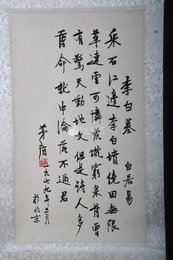 李白墓
白居易
采石江邊李白墳繞田無限
草連雲可憐荒壠窮泉骨曾
有驚天動地文但是詩人多
薄命就中淪落不過君
茅盾
一九七九年
於北京